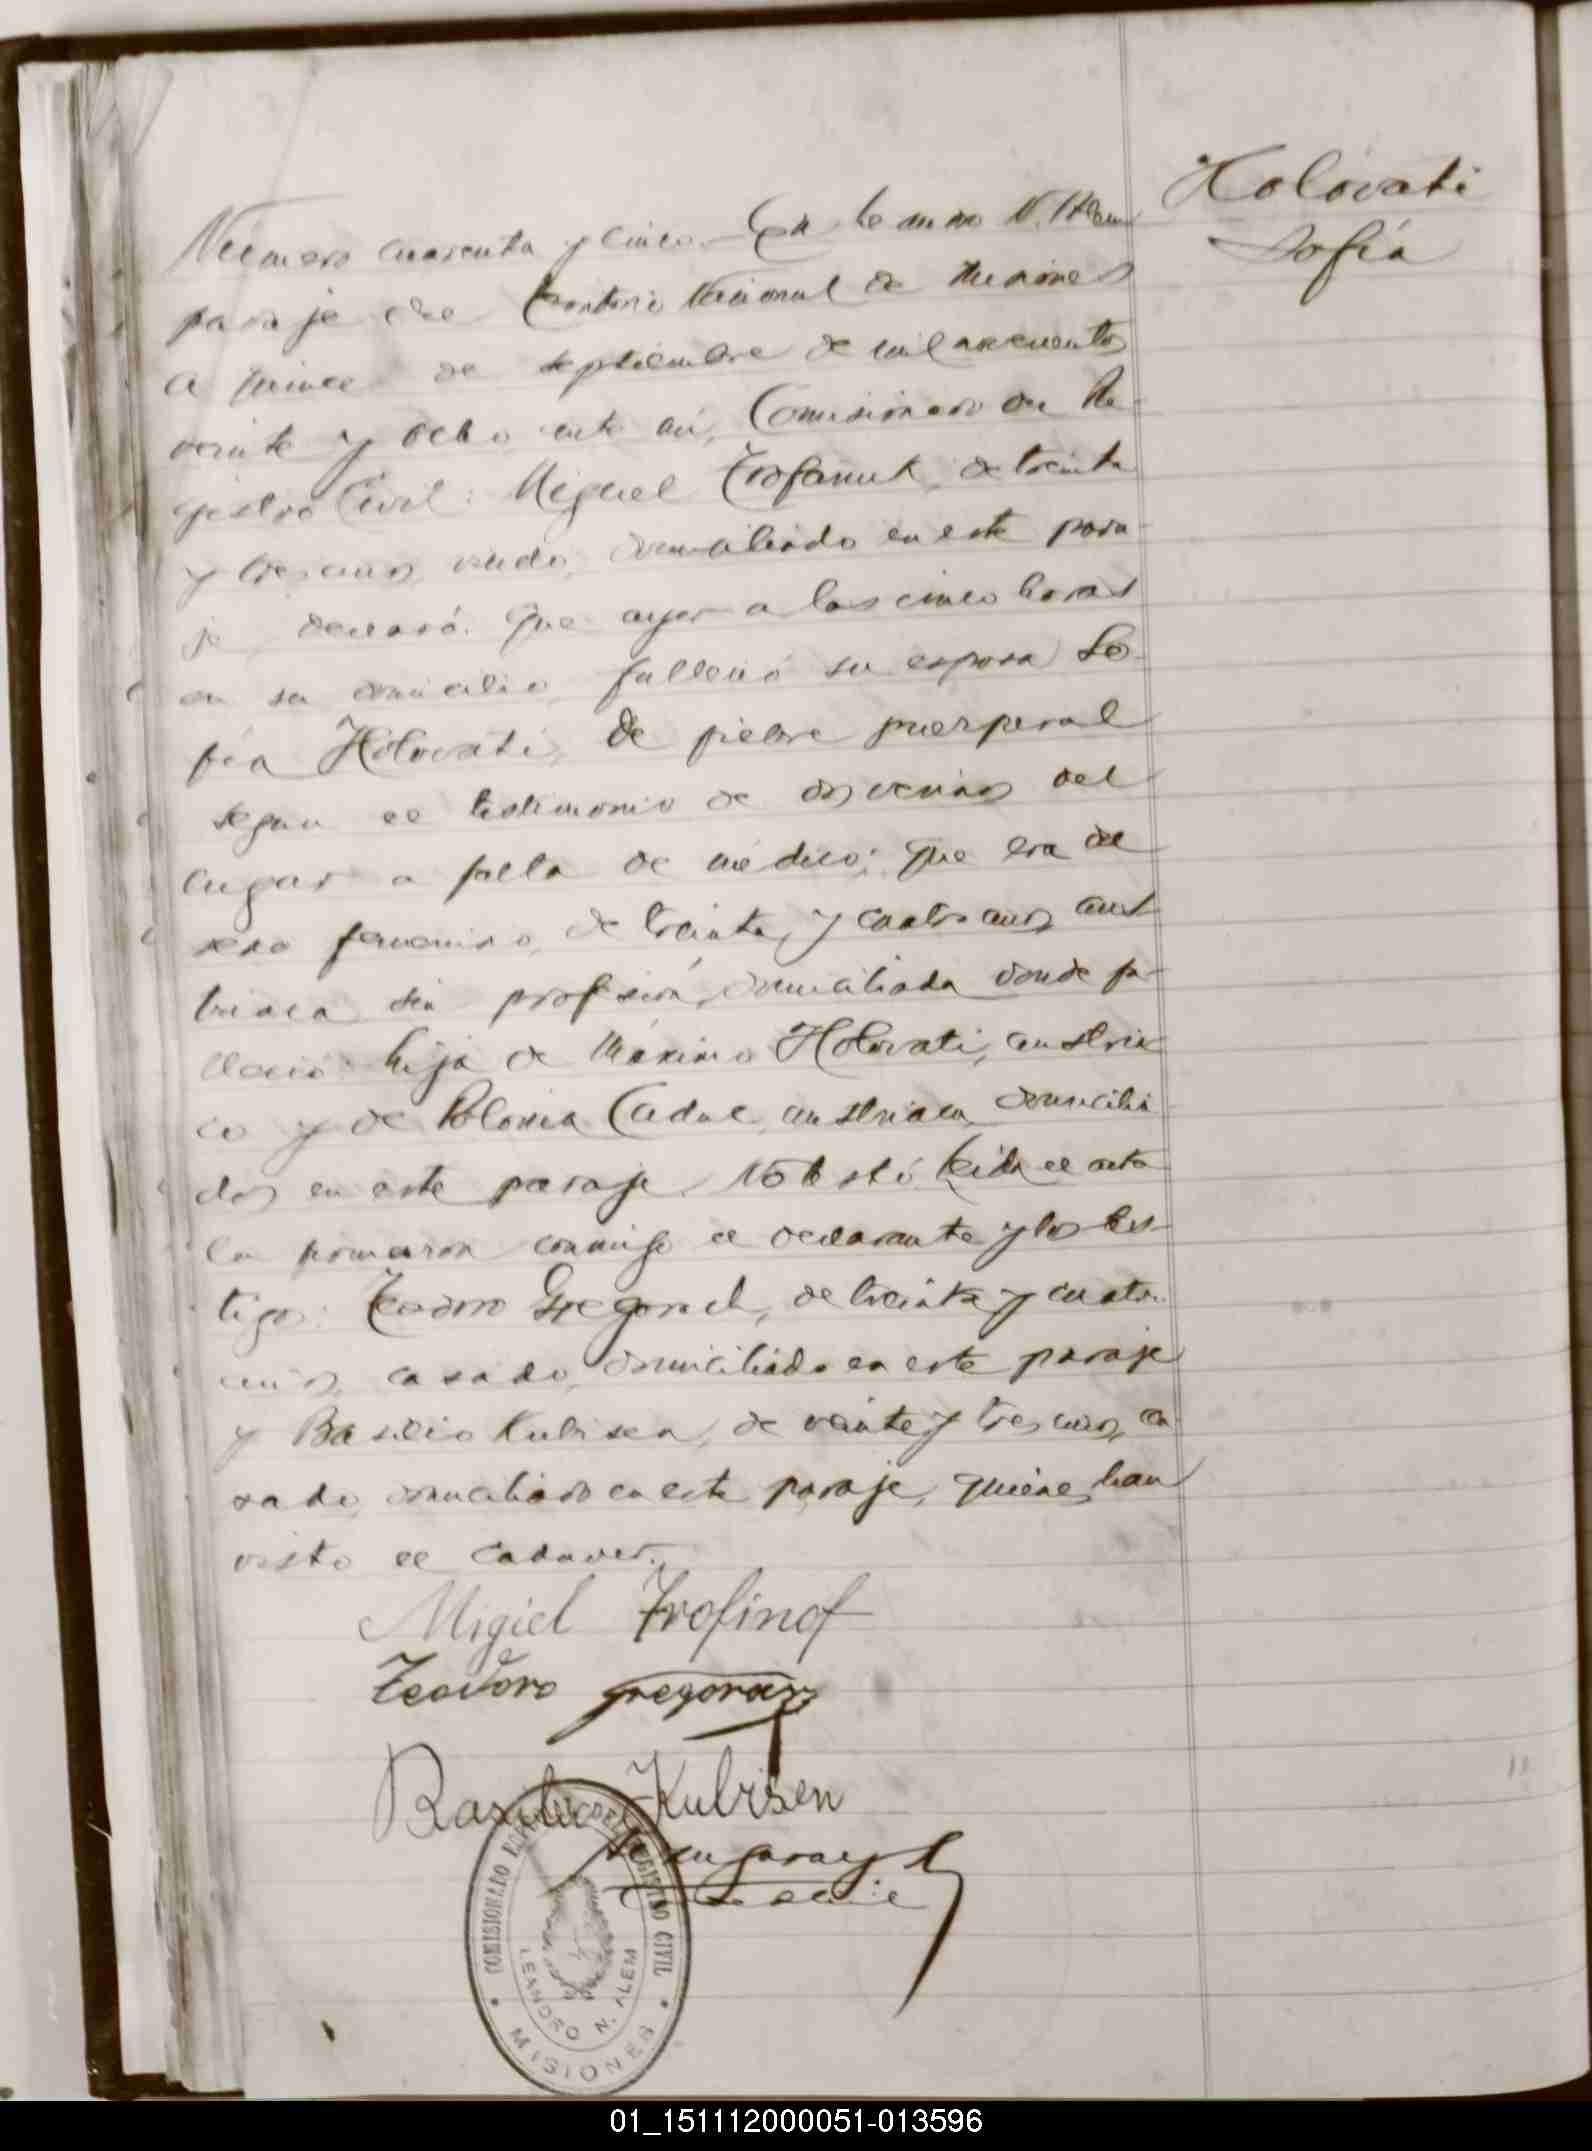 Holovati
Sofía
Número cuarenta y cinco. En Leandro N. Alem
paraje del Territorio Nacional de Misiones
a quince de septiembre de mil novecientos
veinte y ocho ante mí, Comisionado del Re-
gistro Civil: Miguel Trofanuk, de treinta
y tres años, viudo, domiciliado en este para-
je, declaró: Que ayer a las cinco horas
en su domicilio, falleció su esposa So-
fía Holovati, de fiebre puerperal
segun el testimonio de dos vecinos del
lugar a falta de médico; que era del
sexo femenino, de treinta y cuatro años, aus-
triaca sin profesión, domiciliada donde fa-
lleció: hija de Máximo Holovati, austria
co y de Polonia austriaca, domicilia
dos en este paraje. No testó. Leida el acta
la firmaron conmigo el declarante y los tes-
tigos: Teodoro de treinta y cuatro
años, casado, domiciliado en este paraje
y Basilio Kubisen, de veinte y tres años, ca
sado, domiciliado en este paraje, quienes han
visto el cadaver.
Migiel Trofinof
Teodoro
Basilio Kubisen
COMISIONADO DEL REGISTRO CIVIL
LEANDRO N. ALEM
MISIONES
01_151112000051-013596